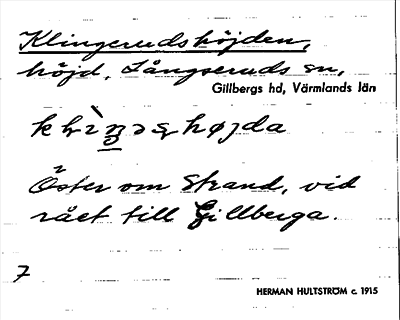 Klingerudshöjden,
höjd, Långseruds sn,
Gillbergs hd, Värmlands län
Öster om Strand, vid
rået till Gillberga.
7
HERMAN HULTSTRÖM c. 1915